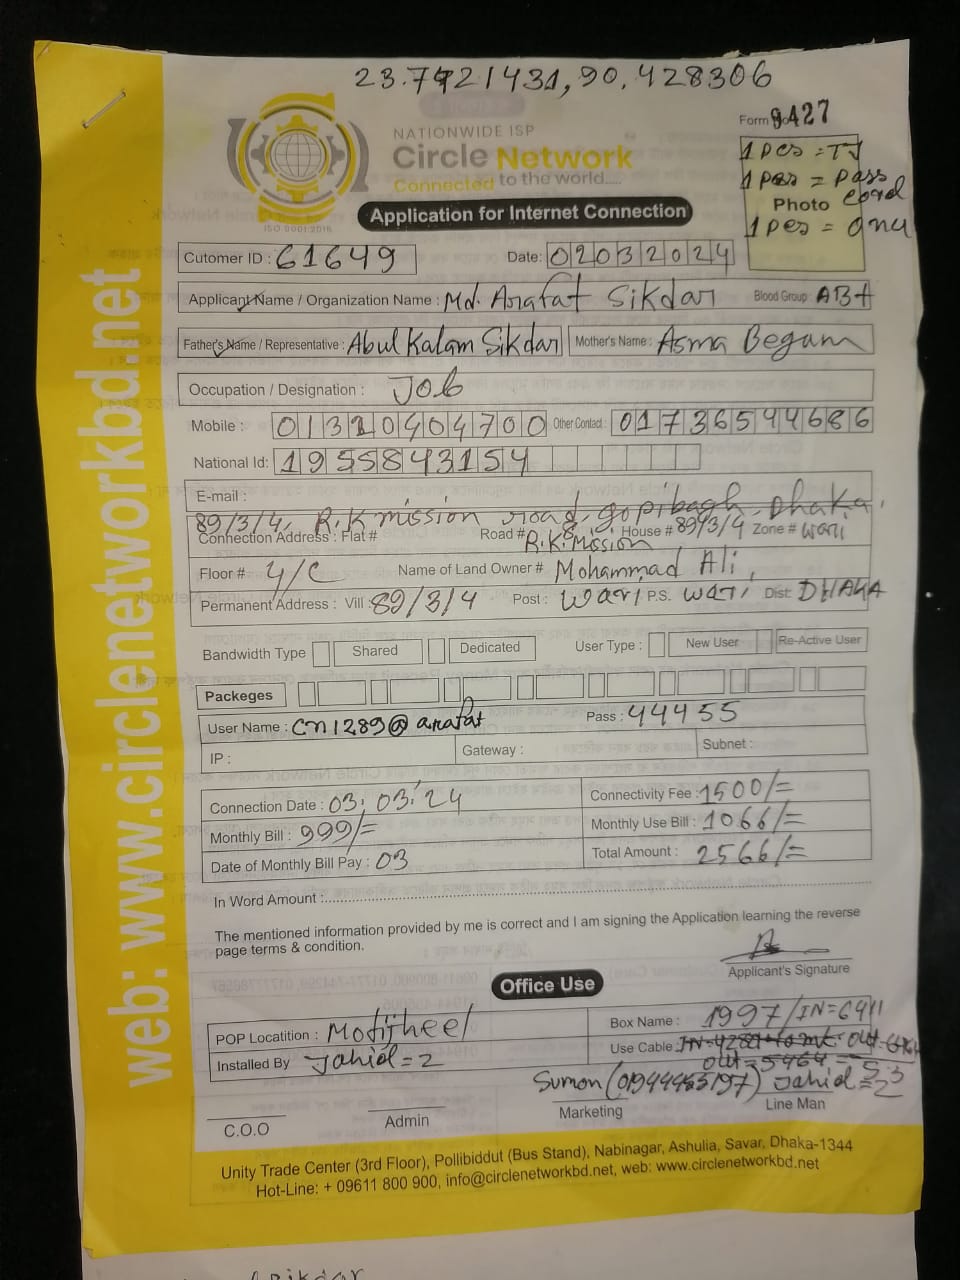 23.7421431,90.428306
Form No 9427
NATIONWIDE ISP
Circle Network
Connected to the world.....
ISO 9001:2015
1 pcs = TJ
1 pcs = Pass Cord
Photo
1 pcs = Onu
Application for Internet Connection
Cutomer ID : 61649 Date: 02032024
Applicant Name / Organization Name : Md. Arafat Sikdar Blood Group AB+
Father's Name / Representative : Abul Kalam Sikdar Mother's Name : Asma Begam
Occupation / Designation : Job
Mobile : 01310404700 Other Contact : 01736544686
National Id: 1955843154
E-mail :
89/3/4, R.K mission road, gopibagh, Dhaka.
Connection Address : Flat # Road # R.K. Mission House # 89/3/4 Zone # wari
Floor # 4/C Name of Land Owner # Mohammad Ali,
Permanent Address : Vill : 89/3/4 Post : wari P.S. wari Dist: DHAKA
Bandwidth Type Shared Dedicated User Type : New User Re-Active User
Packeges
User Name : cn1289@arafat Pass : 44455
IP : Gateway : Subnet :
Connection Date : 03.03.'24 Connectivity Fee : 1500/=
Monthly Bill : 999/= Monthly Use Bill : 1066/=
Date of Monthly Bill Pay : 03 Total Amount : 2566/=
In Word Amount :
The mentioned information provided by me is correct and I am signing the Application learning the reverse
page terms & condition.
Applicant's Signature
Office Use
POP Locatition : Motijheel Box Name : 1997/IN=6411
Installed By Jahid=2 Use Cable :
out=5464
Sumon (01944453197) Jahid=2
C.O.O Admin Marketing Line Man
Unity Trade Center (3rd Floor), Pollibiddut (Bus Stand), Nabinagar, Ashulia, Savar, Dhaka-1344
Hot-Line: + 09611 800 900, info@circlenetworkbd.net, web: www.circlenetworkbd.net
web: www.circlenetworkbd.net